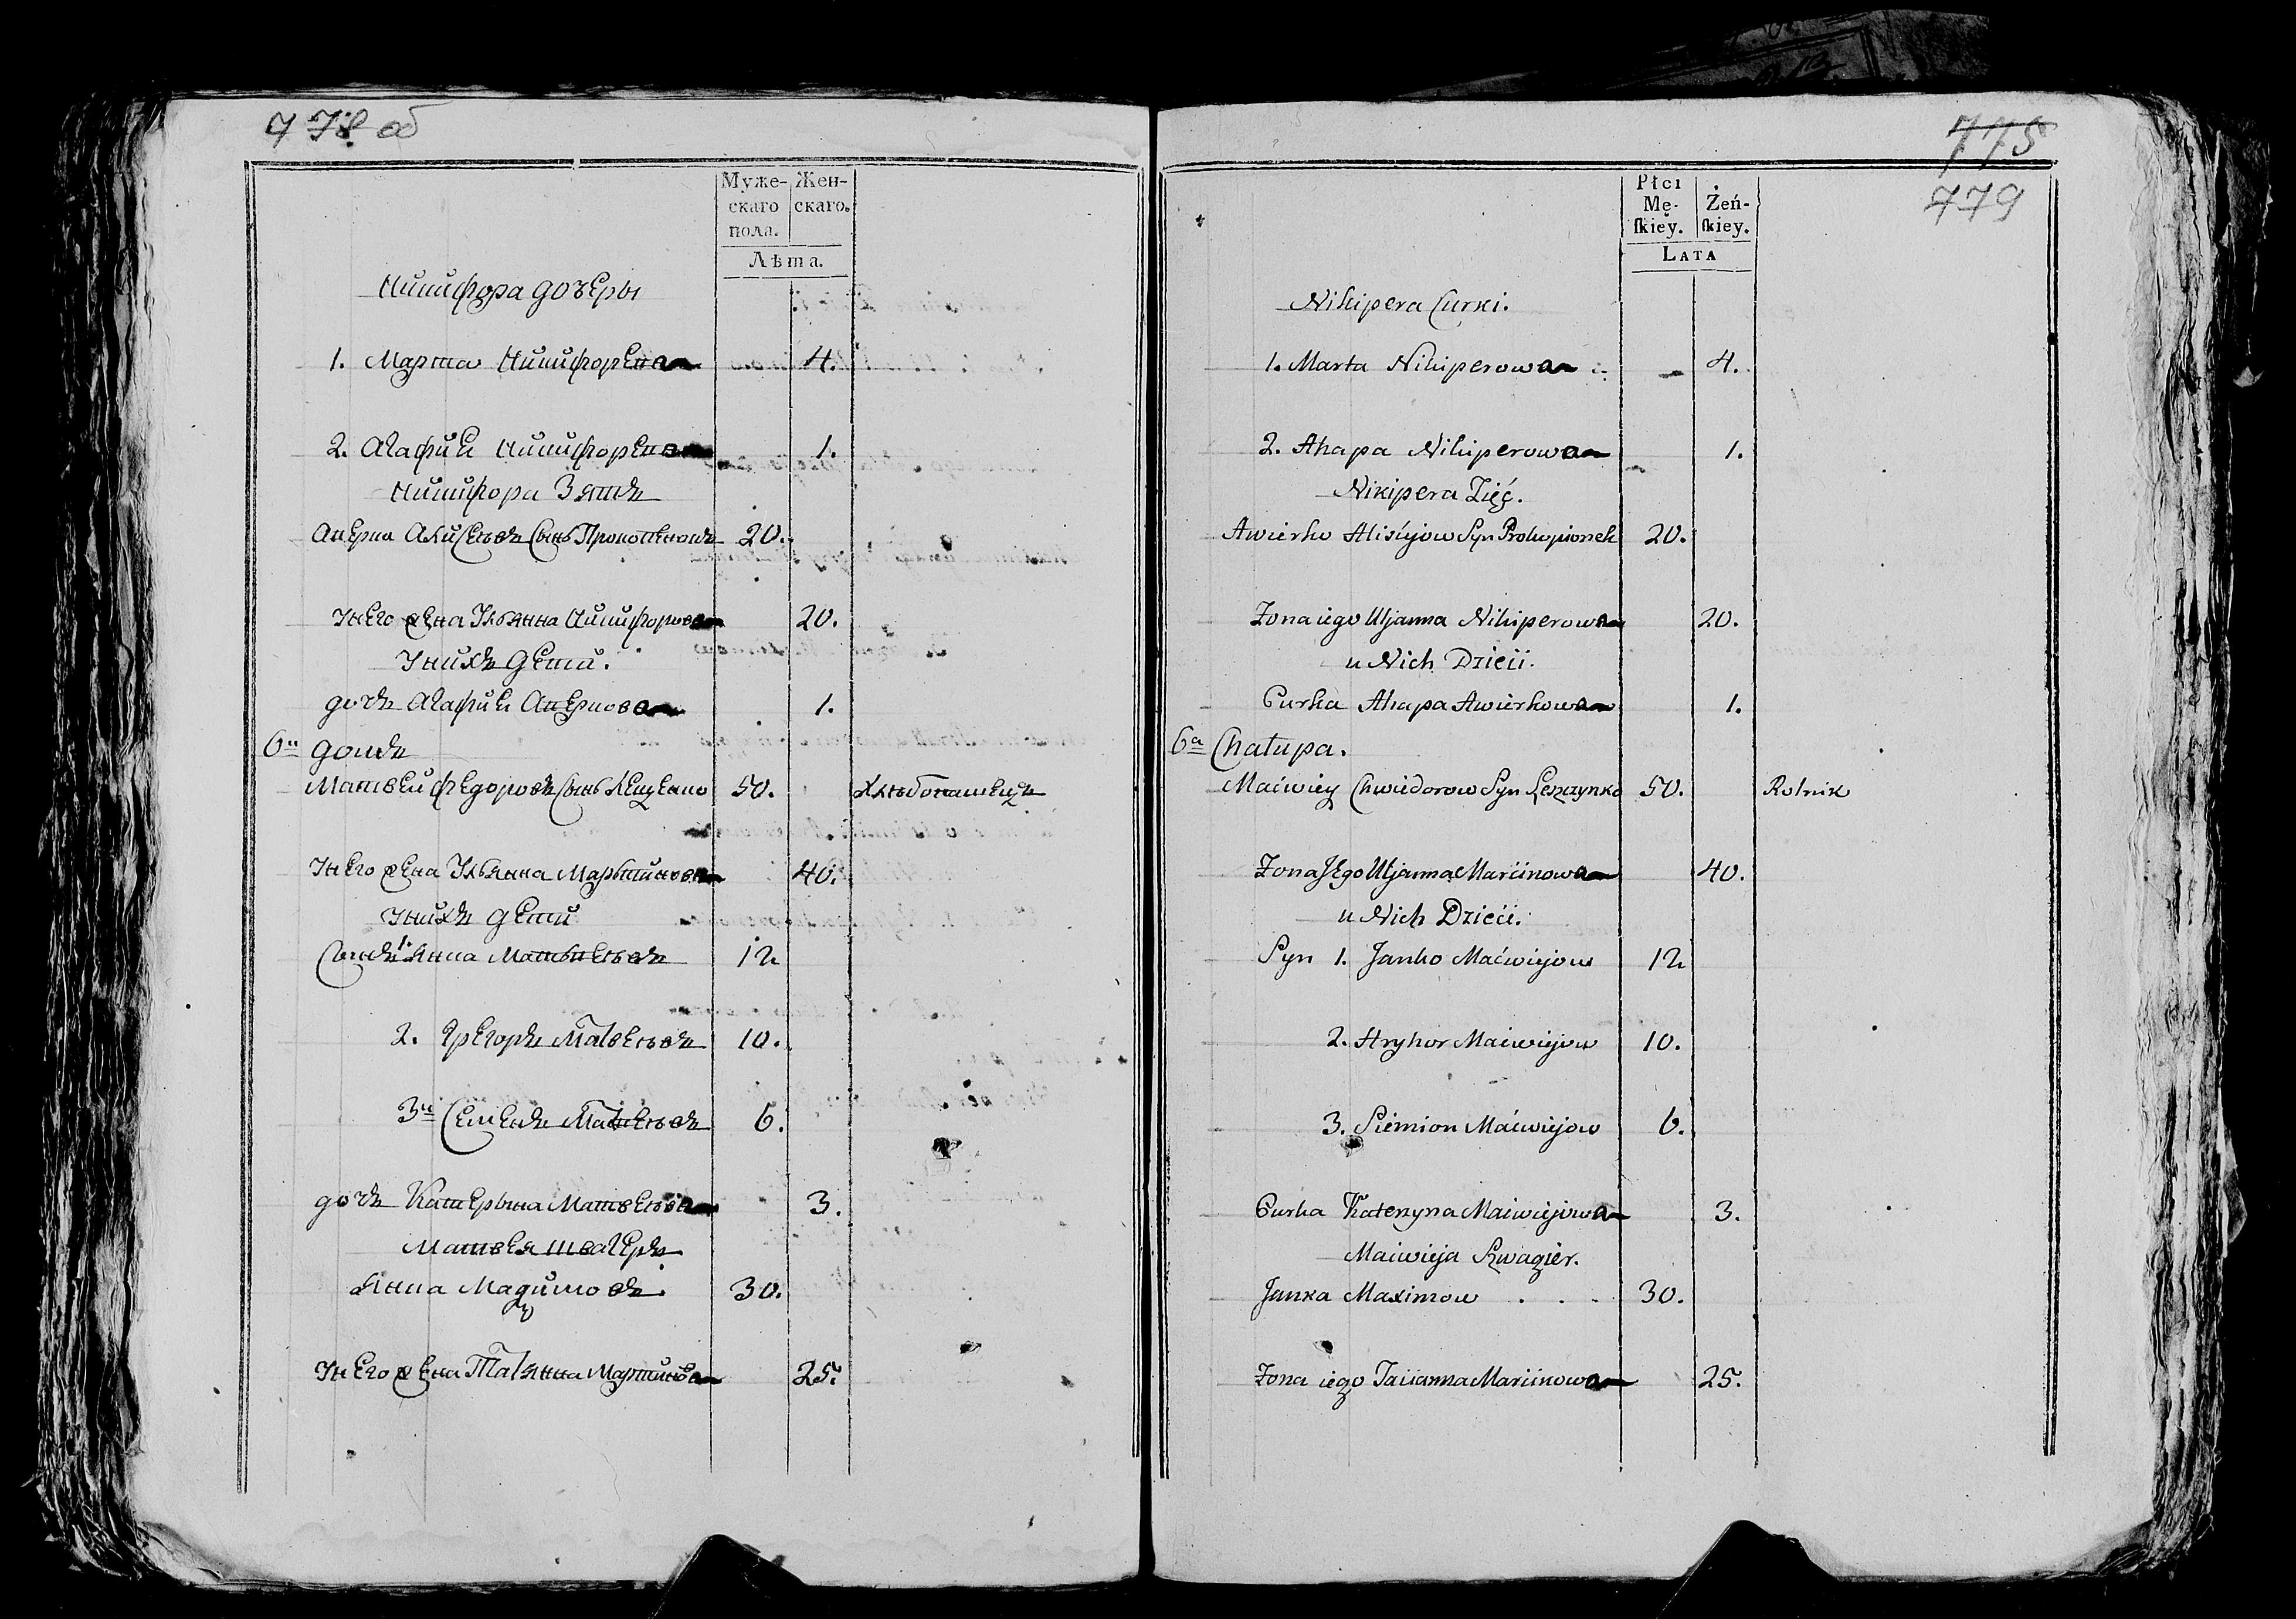 778 об
Муже-
скаго
пола.
Жен-
скаго.
Лѣта.
Никифора дочеры
1. Марта Никифорева 4.
2. Агафия Никифорева 1.
Никифора Зять
Аверка Алисеевъ Сынъ Прокопенокъ 20.
У него жена Ульянна Никифорова 20.
У нихъ дети.
дочь Агафия Аверкова 1.
6й домъ
Матвей Федоровъ Сынъ Лещенко 50. Хлѣбопашецъ
У него жена Ульянна Мартинова 40.
У нихъ дети
Сынъ 1. Янка Матвеевъ 12
2. Грегоръ Матвеевъ 10.
3й Семенъ Матвеевъ 6.
дочь Катерына Матвеева 3.
Матвея швагеръ
Янка Мацимовъ. 30.
У него жена Татянна Мартинова 25.
775
779
Płci
Mę-
skiey.
Żeń-
skiey.
LATA
Nikipera Curki.
1. Marta Nikiperowa 4.
2. Ahapa Nikiperowa 1.
Nikipera Zięć.
Awierko Alisiejow Syn Prokopionek 20.
Żona iego Uljanna Nikiperowa 20.
u Nich Dzieci.
Curka Ahapa Awierkowa 1.
6a Chałupa.
Maćwiey Chwiedorow Syn Leszczynko 50. Rolnik
Żona Jego Uljanna Marcinowa 40.
u Nich Dzieci.
Syn 1. Janko Maćwiejow 12
2. Hryhor Maćwiejow 10.
3. Siemion Maćwiejow 6.
Curka Katerzyna Maćwiejowa 3.
Maćwieja Szwagier.
Janka Maximow . . . 30.
Żona iego Tacianna Marcinowa 25.